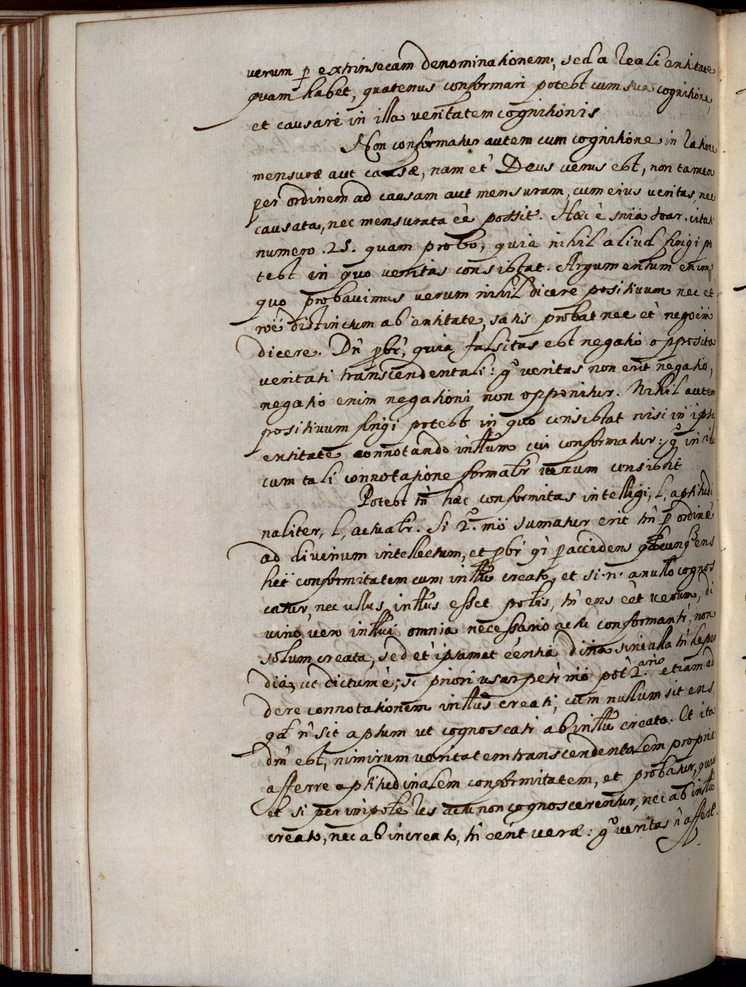 verum p extrinsecam denominationem, sed a reali entitate
quam habet, quatenus conformari potest cum sua cognitione,
et causare in illa veritatem cognitionis
Non conformatur autem cum cognitione in ratione
mensuræ aut causæ, nam et Deus verus est, non tamen
per ordinem ad causam aut mensuram, cum eius veritas nec
causata, nec mensurata eē possit. Hæc ē snīa Soar. citat
numero .25. quam probo, quia nihil aliud fingi po
test in quo veritas consistat. Argumentum enim
quo probavimus verum nihil dicere positivum nec et
roē distinctum ab entitate, satis probat nec et negoēm
dicere. Dn pbr, quia falsitas est negatio opposita
veritati transcendentali: gº veritas non erit negatio,
negatio enim negationi non opponitur. Nihil autem
positivum fingi potest in quo consistat nisi in ipsa
entitate connotando intllum cui conformatur: gº in illa
cum tali connotatione formalr verum consistit
Potest tn hæc conformitas intelligi, l, aptitudi
naliter, l, actualr. Si 2º mō sumatur erit tn p ordinē
ad divinum intellectum, et pbr qī p accidens ens
het conformitatem cum intllu creato, et si .n. a nullo cognos
catur, nec ullus intllus esset poblis, tn ens eēt verum, di
vino vero intllui omnia necessario actu conformantr, non
solum creata, sed et ipsamet eentia diīna sine ulla tn
dia, ut dictum ē; si priori usurpetr mō pot 2ario etiam ad
dere connotationem intllus creati, cum nullum sit ens
qd n sit aptum ut cognoscatr ab intllu creato. Et ita
dm est, nimirum veritatem transcendentalem proprie
afferre aptitudinalem conformitatem, et probatur, quia
et si per impole res actu non cognoscerentur, nec ab intllu
creato, nec ab increato, tn eent veræ: gº veritas n affert